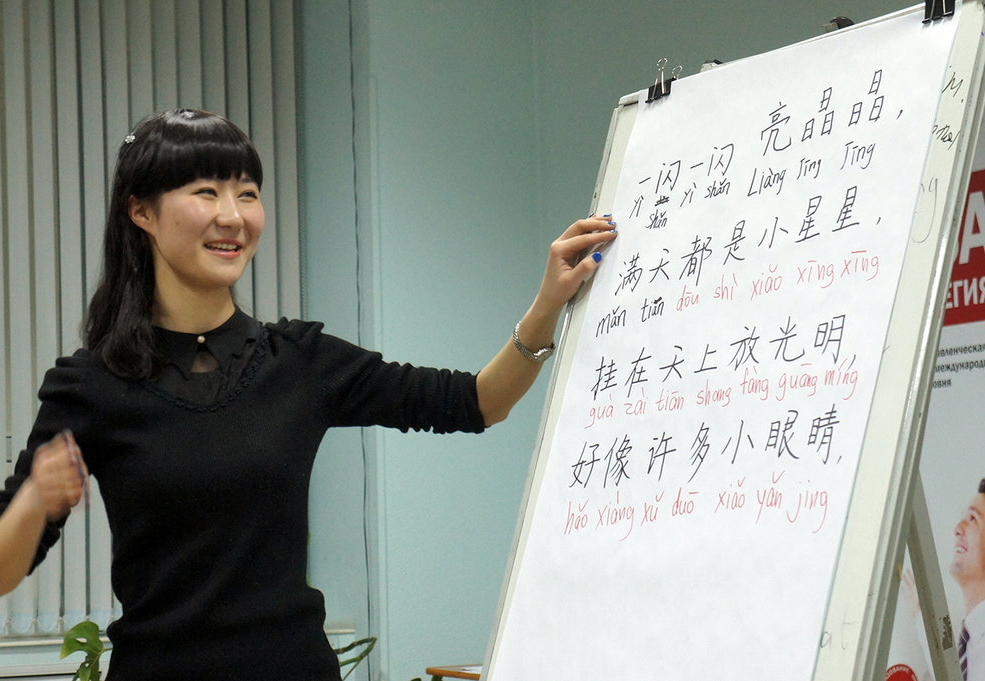 一闪一闪 亮晶晶,
yī shǎn yì shǎn Liàng jīng jīng
满天都是小星星,
mǎn tiān dōu shì xiǎo xīng xīng
挂在天上放光明,
guà zài tiān shang fàng guāng míng
好像许多小眼睛,
hǎo xiàng xǔ duō xiǎo yǎn jing
ЕГИЯ